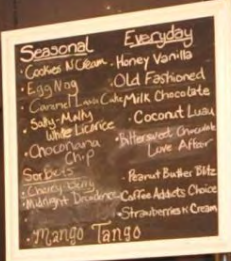 Seasonal
Cookies N Cream
Egg Nog
Caramel Cake
Salty-Malty
White Licorice
Choconana
Chip
Sorbets
Cherry Berry
Midnight Decadence
Mango Tango
Everyday
Honey Vanilla
Old Fashioned
Milk Chocolate
Coconut Luau
Bittersweet Chocolate
Love Affair
Peanut Butter Blitz
Coffee Addicts Choice
Strawberries N Cream